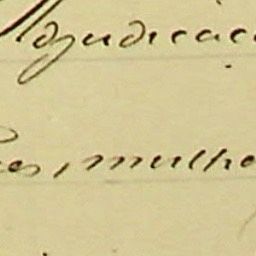 Adjudicac
es, mulhe